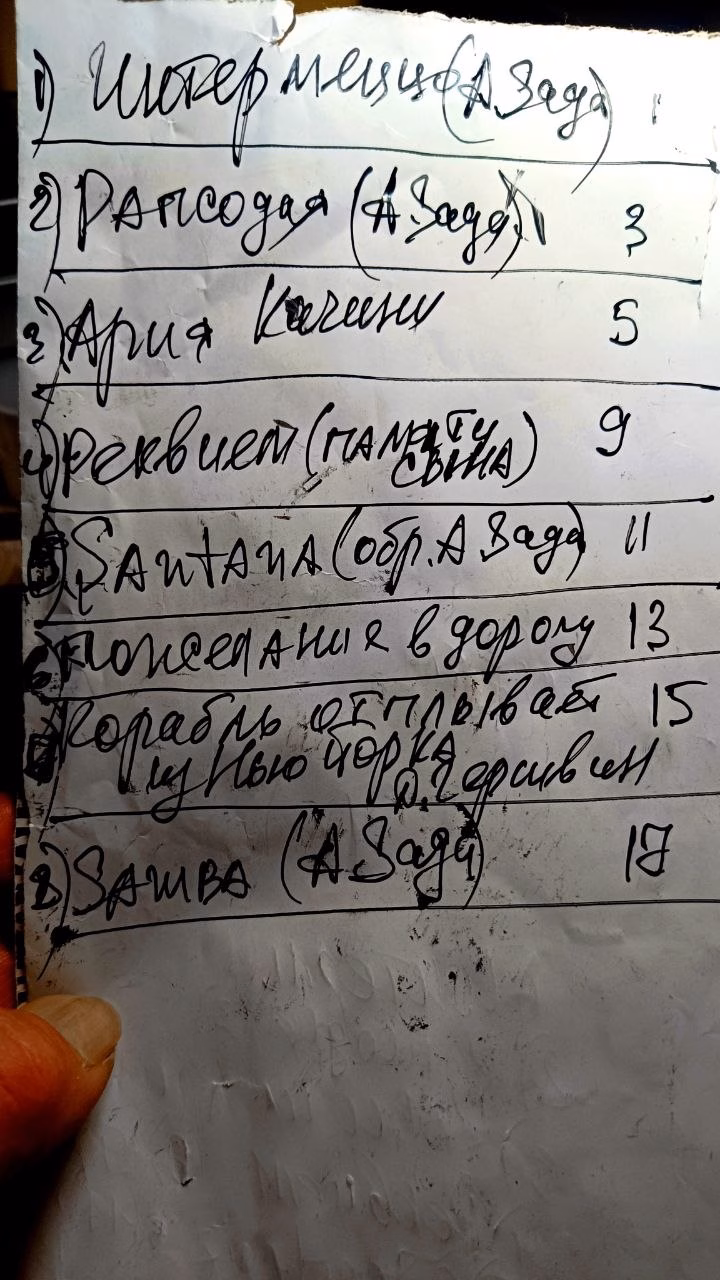 1) Интермеццо (А Зада) 1
2) Рапсодия (А. Зада) 3
3) Ария Качини 5
4) Реквием (памяти
сына) 9
5) SANTANA (обр. А Зада) 11
6) Пожелание в дорогу 13
7) Корабль отплывает 15
из Нью Йорка
Д. Гершвин
8) SAMBA (А Зада) 17